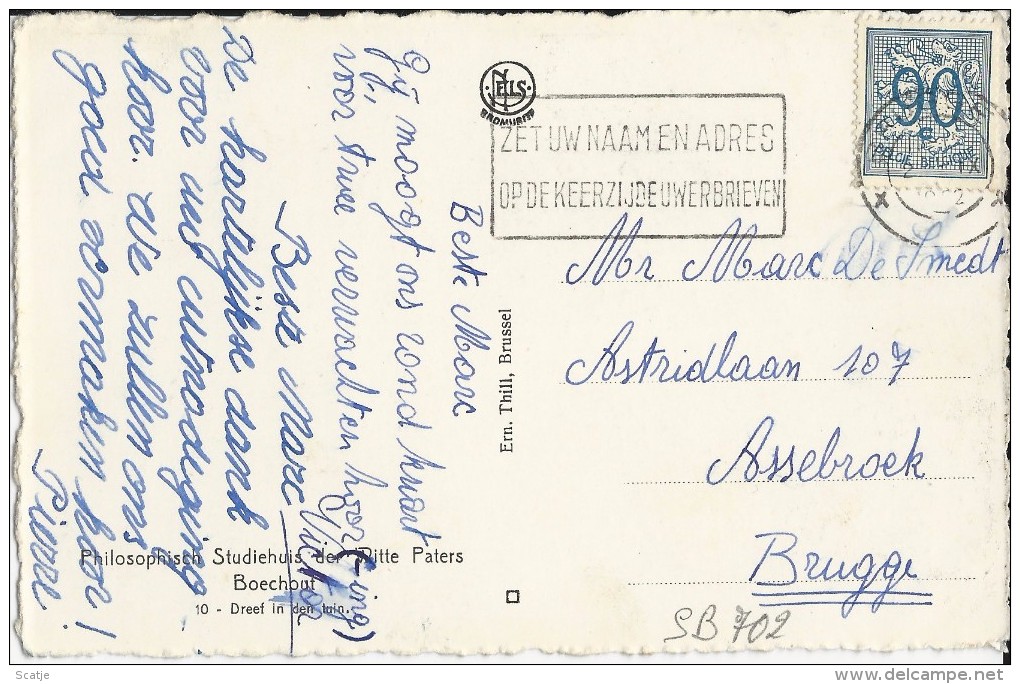 Beste Marc
Gij moogt ons rond kwart
voor twee verwachten hoor
Victor
(-ing)
Beste Marc
De hartelijkse dank
voor uw uitnodiging
hoor. We zullen ons
goed vermaken hoor!
Pierre
NELS
BROMURITE
ZET UW NAAM EN ADRES
OP DE KEERZIJDE UWER BRIEVEN
90
BELGIE BELGIQUE
Ern. Thill, Brussel
Mr Marc De Smedt
Astridlaan 107
Assebroek
Brugge
Philosophisch Studiehuis der Witte Paters
Boechout
10 - Dreef in den tuin.
SB 702
Scatje
delcampe.net